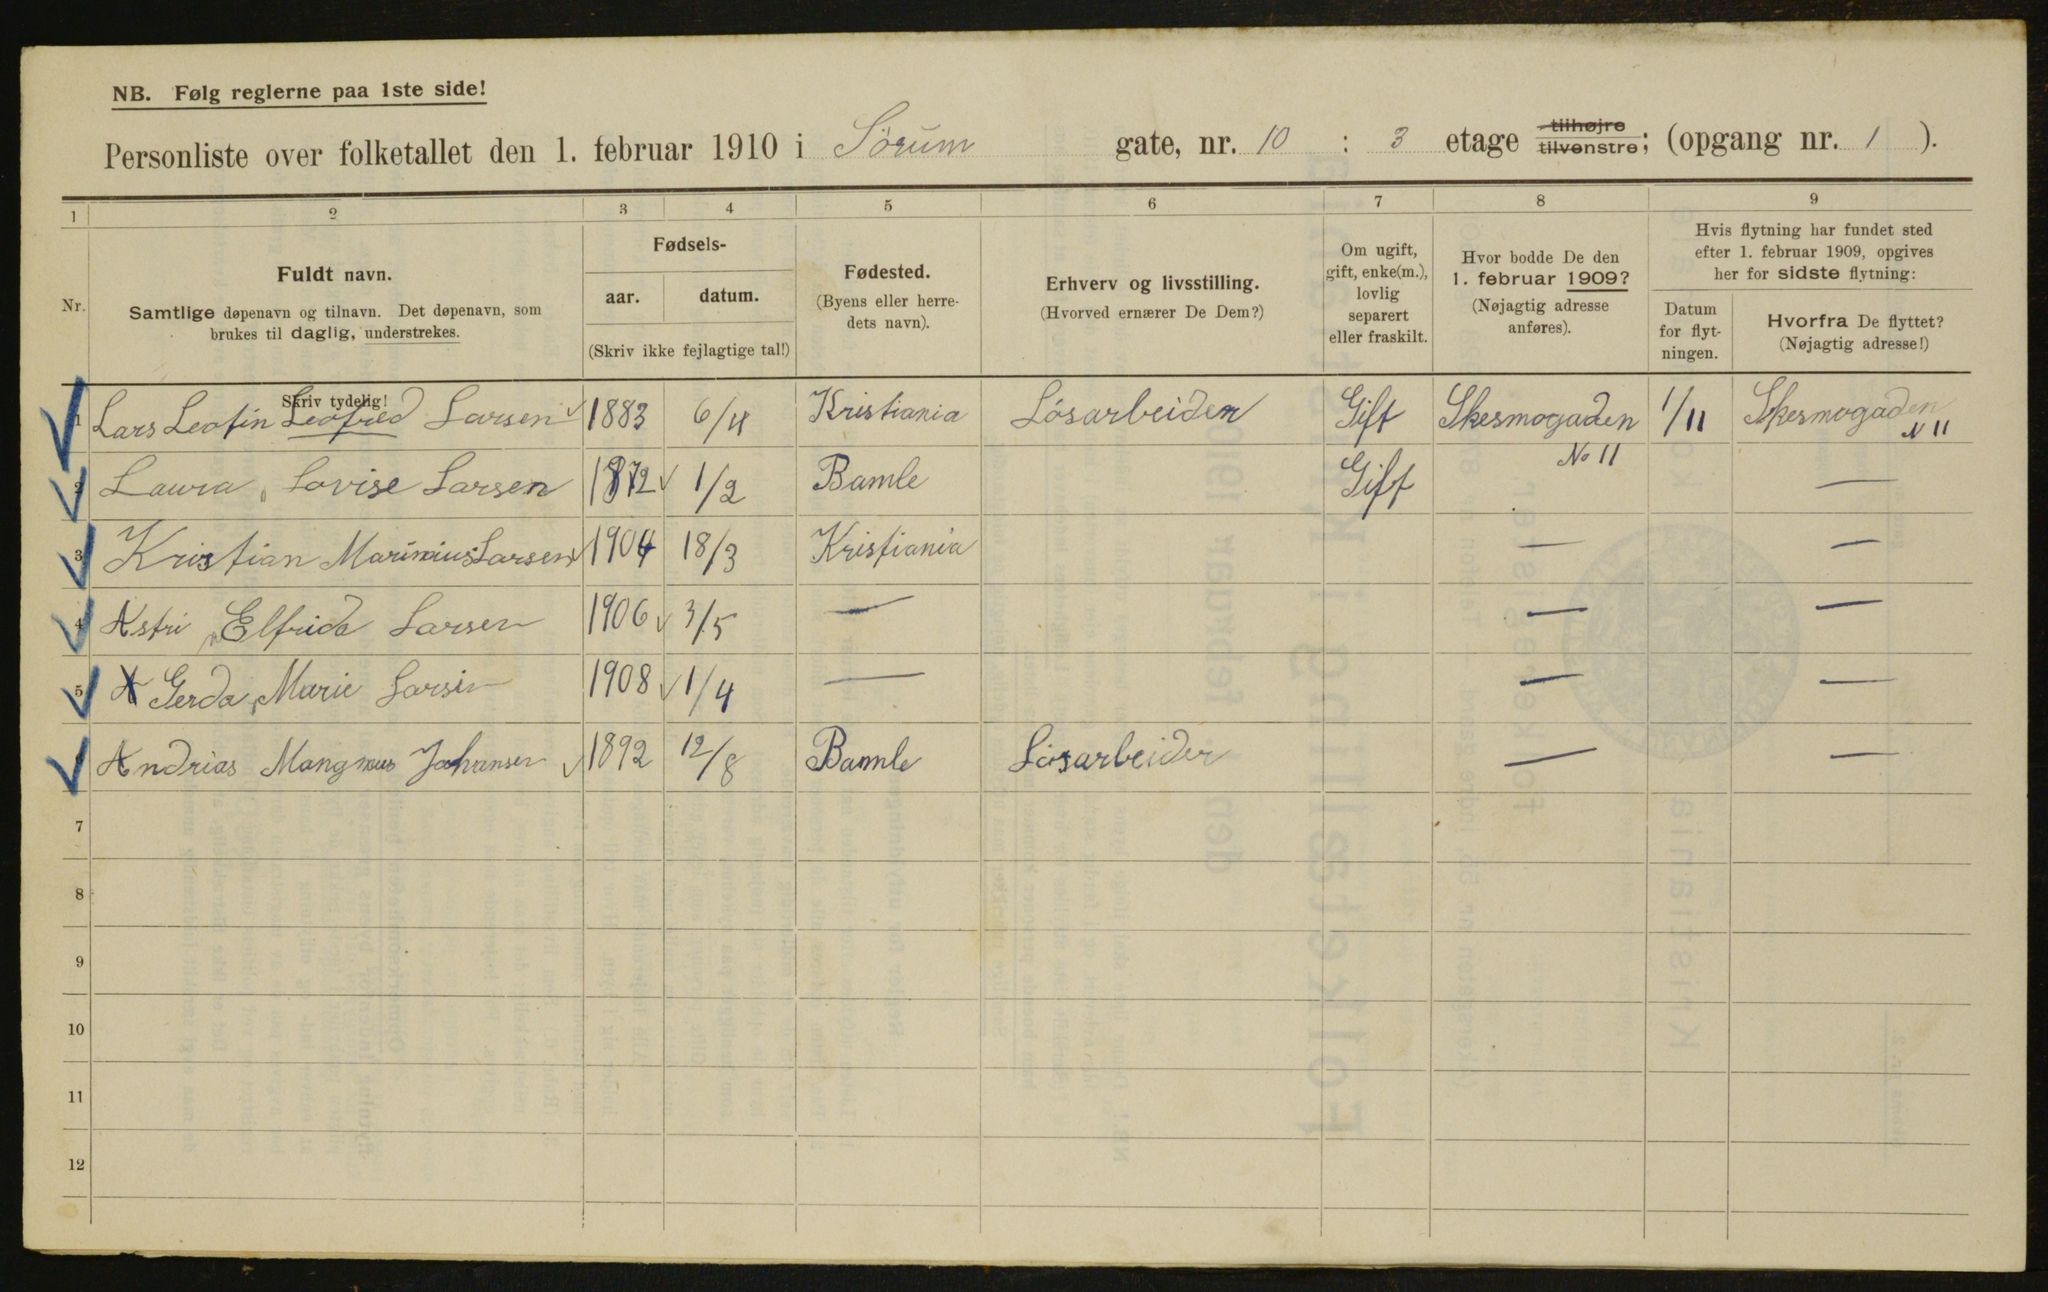 NB. Følg reglerne paa 1ste side!
Personliste over folketallet den 1. februar 1910 i Sørum gate, nr. 10 : 3 etage tilhøjre tilvenstre; (opgang nr. 1 ).
1 2 3 4 5 6 7 8 9
Nr.
Fuldt navn.
Samtlige døpenavn og tilnavn. Det døpenavn, som
brukes til daglig, understrekes.
Skriv tydelig!
Fødsels-
aar. datum.
(Skriv ikke fejlagtige tal!)
Fødested.
(Byens eller herre-
dets navn).
Erhverv og livsstilling.
(Hvorved ernærer De Dem?)
Om ugift,
gift, enke(m.),
lovlig
separert
eller fraskilt.
Hvor bodde De den
1. februar 1909?
(Nøjagtig adresse
anføres).
Hvis flytning har fundet sted
efter 1. februar 1909, opgives
her for sidste flytning:
Datum
for flyt-
ningen.
Hvorfra De flyttet?
(Nøjagtig adresse!)
1 Lars Leofin Leofred Larsen 1883 6/4 Kristiania Lösarbeider Gift Skesmogaden No 11 1/11 Skesmogaden N 11
2 Laura Lovise Larsen 1872 1/2 Bamle Gift —
3 Kristian Marinius Larsen 1904 18/3 Kristiania — —
4 Astri Elfrida Larsen 1906 3/5 — — —
5 Gerda Marie Larsin 1908 1/4 — — —
Andrias Mangnus Johansen 1892 12/8 Bamle Lösarbeider — —
7
8
9
10
11
12